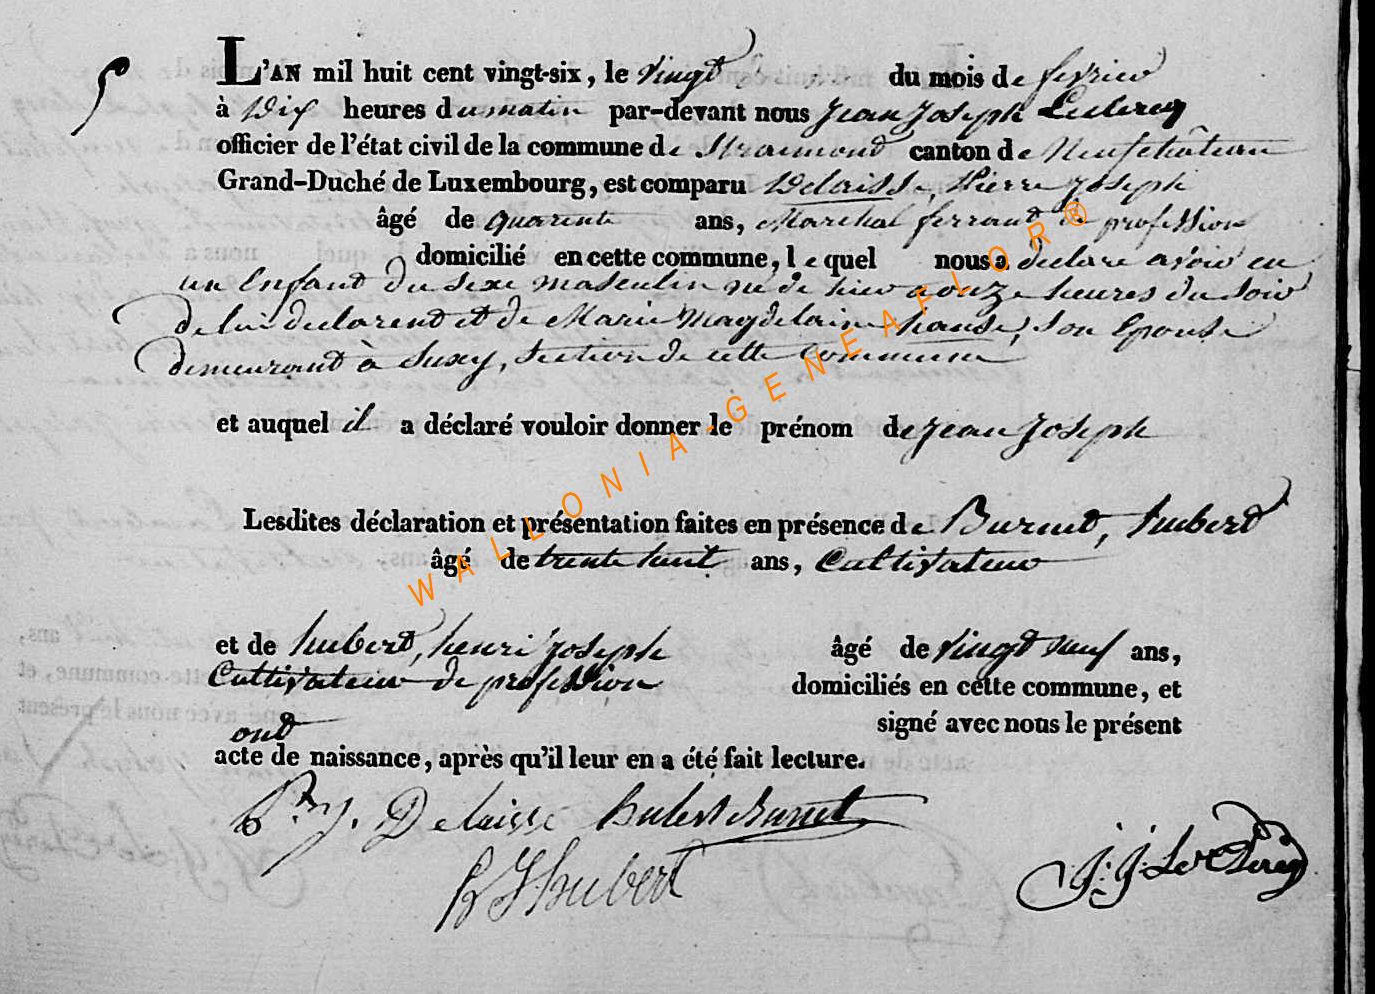 5
L'AN mil huit cent vingt-six, le vingt du mois de fevrier
à Dix heures du matin par-devant nous Jean Joseph Leclercq
officier de l'état civil de la commune de Straimont canton de Neufchâteau
Grand-Duché de Luxembourg, est comparu Delaisse, Pierre Joseph
âgé de quarente ans, Marchal ferrant de profession
domicilié en cette commune, lequel nous a declaré avoir eu
un Enfant du sexe masculin né de hier a onze heures du soir
de lui declarent et de Marie Magdelaine hanse, son Epouse
demeurant à Suxy, section de cette commune
et auquel il a déclaré vouloir donner le prénom de Jean Joseph
Lesdites déclaration et présentation faites en présence de Burnet, hubert
âgé de trente huit ans, Cultivateur
et de hubert, henri Joseph âgé de vingt neuf ans,
Cultivateur de profession domiciliés en cette commune, et
ont signé avec nous le présent
acte de naissance, après qu'il leur en a été fait lecture.
P.re J. Delaisse Hubert Burnet
H J hubert J. J. Leclercq
WALLONIA-GENEAFLOR®